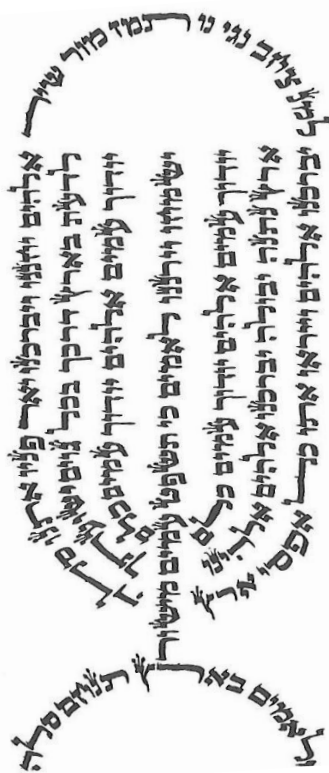 למנצח בנגינות מזמור שיר
אלהים יחננו ויברכנו יאר פניו אתנו סלה
לדעת בארץ דרכך בכל גוים ישועתך
יודוך עמים אלהים יודוך עמים כלם
ישמחו וירננו לאמים כי תשפט עמים מישור
ולאמים בארץ תנחם סלה
יודוך עמים אלהים יודוך עמים כלם
ארץ נתנה יבולה יברכנו אלהים אלהינו
יברכנו אלהים וייראו אתו כל אפסי ארץ